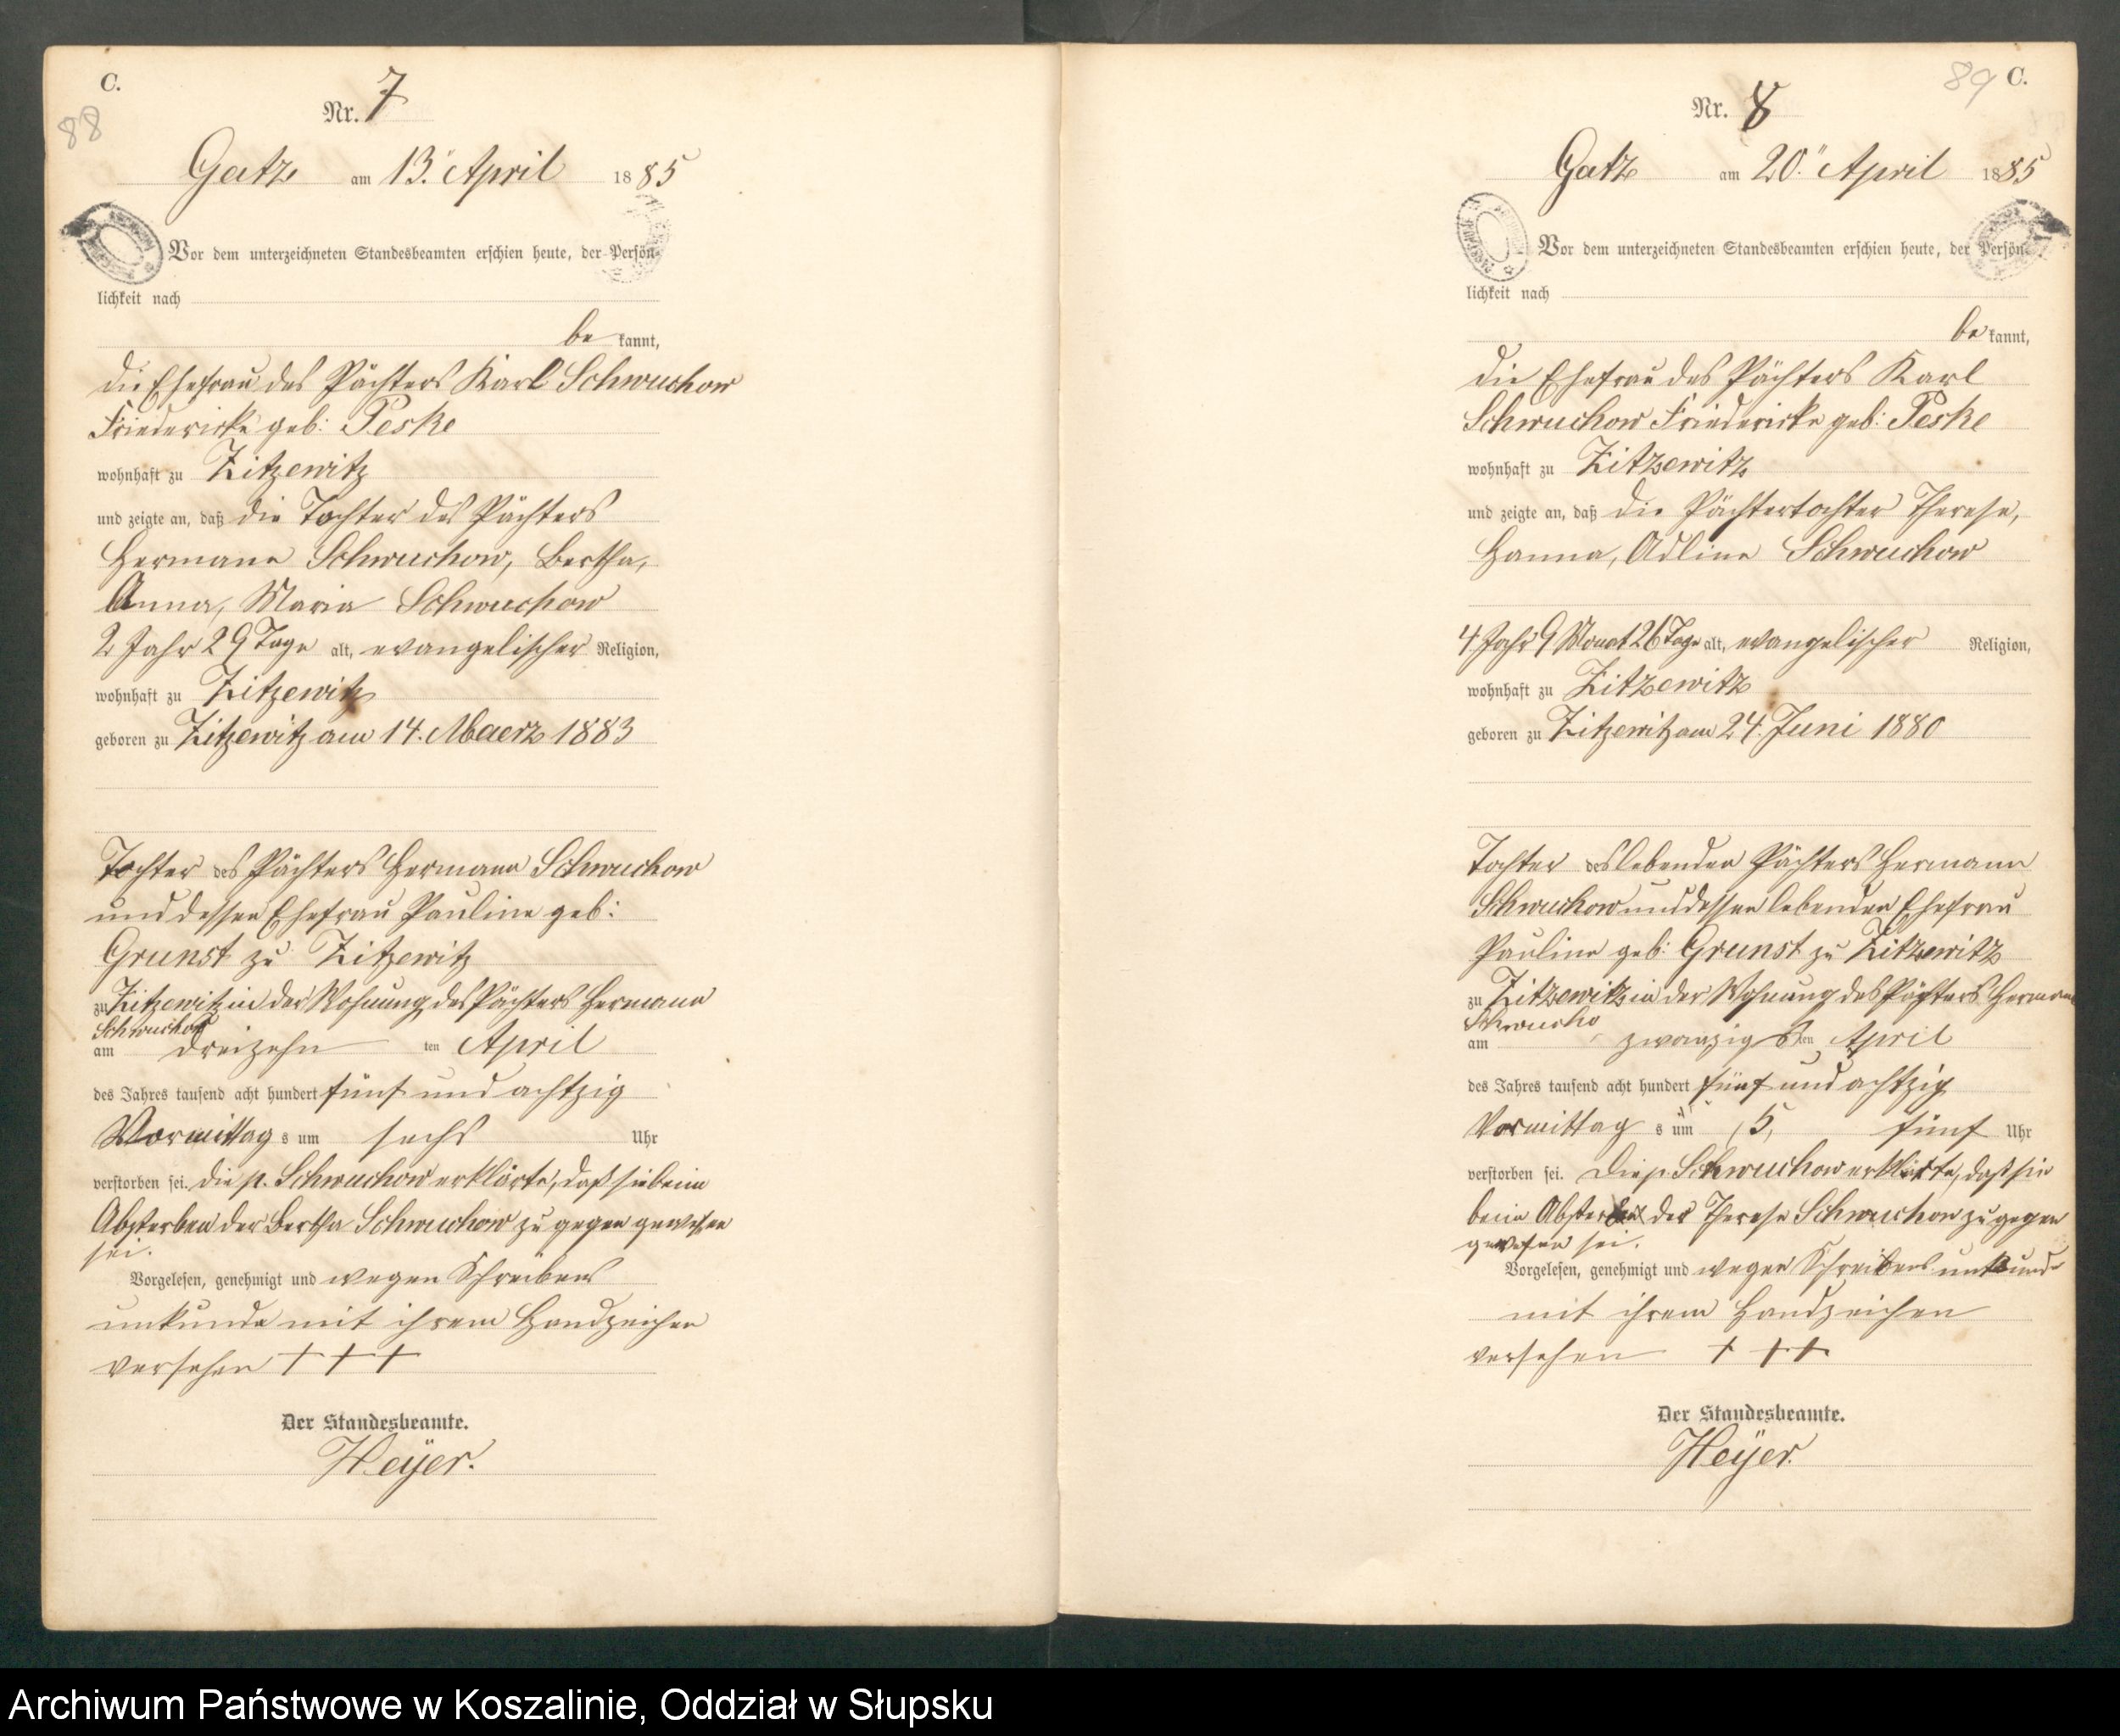 C.
88
Nr. 7
Gatz am 13. April 1885
Vor dem unterzeichneten Standesbeamten erschien heute, der Persön-
lichkeit nach
be kannt,
die Ehefrau des Pächters Karl Schwuchow
Friedericke geb: Peske
wohnhaft zu Zitzewitz
und zeigte an, daß die Tochter des Pächters
Hermann Schwuchow, Bertha,
Anna, Maria Schwuchow
2 Jahr 29 Tage alt, evangelischer Religion,
wohnhaft zu Zitzewitz
geboren zu Zitzewitz am 14. Maerz 1883
Tochter des Pächters Hermann Schwuchow
und dessen Ehefrau Pauline geb:
Grunst zu Zitzewitz
zu Zitzewitz in der Wohnung des Pächters Hermann
Schwuchow
am dreizehn ten April
des Jahres tausend acht hundert fünf und achtzig
Vormittag s um sechs Uhr
verstorben sei. die p. Schwuchow erklärte, daß sie beim
Absterben der Bertha Schwuchow zu gegen gewesen
sei.
Vorgelesen, genehmigt und wegen Schreibens
unkunde mit ihrem Handzeichen
versehen + + +
Der Standesbeamte.
Heÿer.
89 C.
Nr. 8
Gatz am 20. April 1885
Vor dem unterzeichneten Standesbeamten erschien heute, der Persön-
lichkeit nach
be kannt,
die Ehefrau des Pächters Karl
Schwuchow Friedericke geb: Peske
wohnhaft zu Zitzewitz
und zeigte an, daß die Pächtertochter Therese,
Hanna, Adline Schwuchow
4 Jahr 9 Monat 26 Tage alt, evangelischer Religion,
wohnhaft zu Zitzewitz
geboren zu Zitzewitz am 24. Juni 1880
Tochter des lebenden Pächters Hermann
Schwuchow und dessen lebenden Ehefrau
Pauline geb: Grunst zu Zitzewitz
zu Zitzewitz in der Wohnung des Pächters Hermann
Schwucho
am zwanzig sten April
des Jahres tausend acht hundert fünf und achtzig
Vormittag s um 5, fünf Uhr
verstorben sei. Die p. Schwuchow erklärte, daß sie
beim Absterben der Therese Schwuchow zu gegen
gewesen sei.
Vorgelesen, genehmigt und wegen Schreibens unkunde
mit ihrem Handzeichen
versehen + + +
Der Standesbeamte.
Heÿer.
Archiwum Państwowe w Koszalinie, Oddział w Słupsku